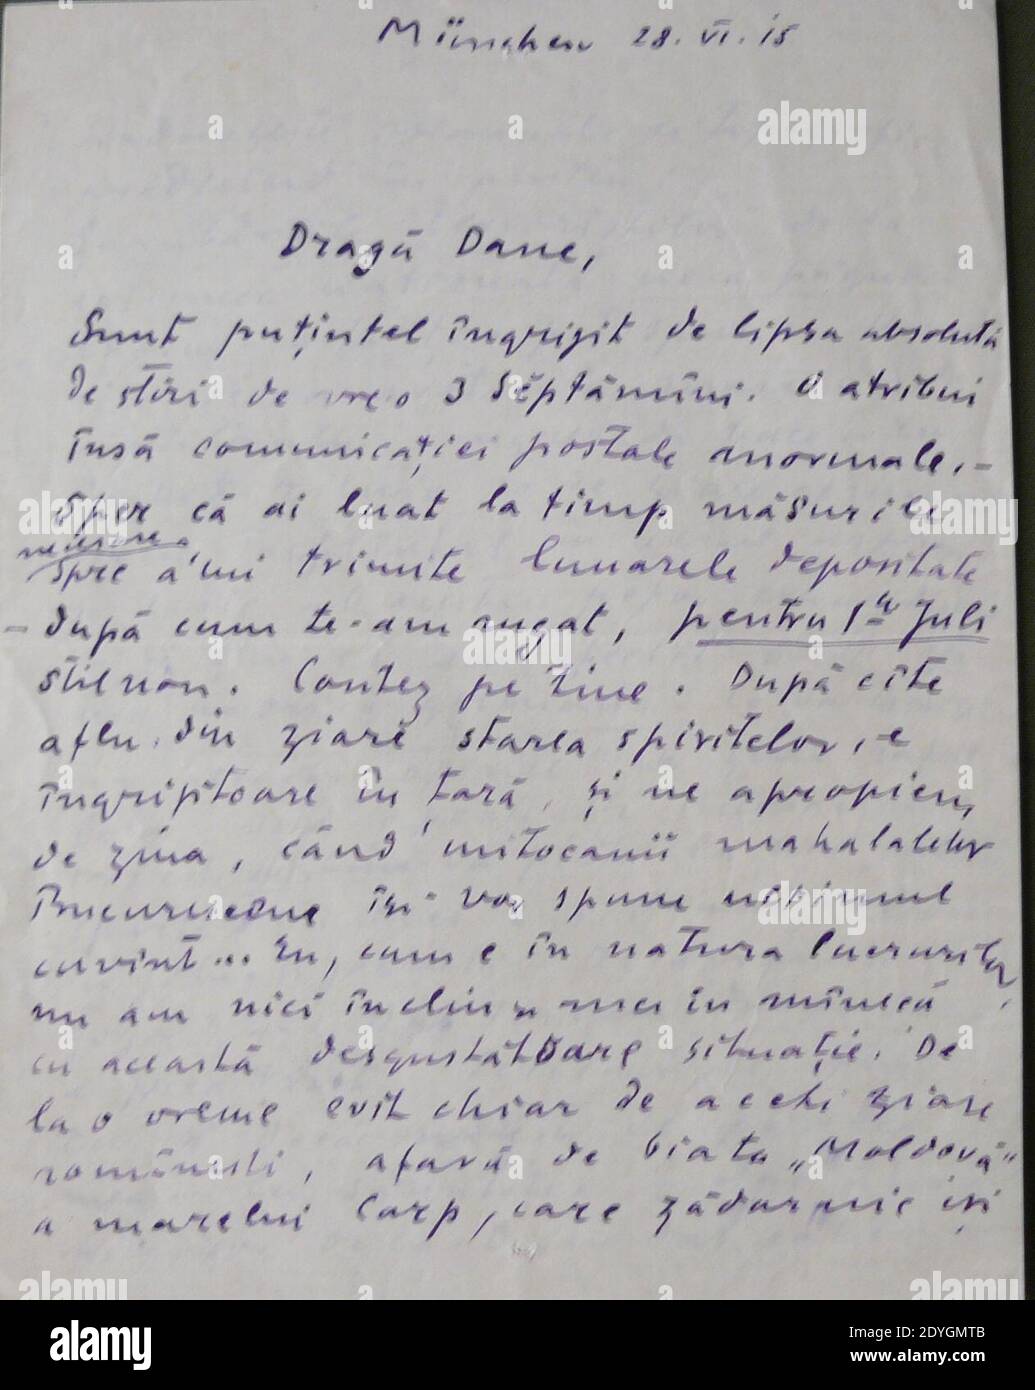 München 28. VI. 15
Dragă Dane,
Sunt puțintel îngrijit de lipsa absolută
de știri de vreo 3 Săptămîni. O atribui
însă comunicației postale anormale. –
Sper că ai luat la timp măsurile
necesare
spre a'mi trimite lunarele depositate
– după cum te-am rugat, pentru 1 Juli
stil nou. Contez pe tine. După cîte
aflu din ziare starea spiritelor, e
îngrijitoare în țară, și ne apropiem
de ziua, când mitocanii mahalalelor
Bucureștene își vor spune ultimul
cuvînt... Eu, cum e în natura lucrurilor,
nu am nici în clin nici în mînecă
cu această desgustătoare situație. De
la o vreme evit chiar de a ceti ziare
românești, afară de biata „Moldovă"
a marelui Carp, care zădarnic își
alamy
Image ID: 2DYGMTB
www.alamy.com